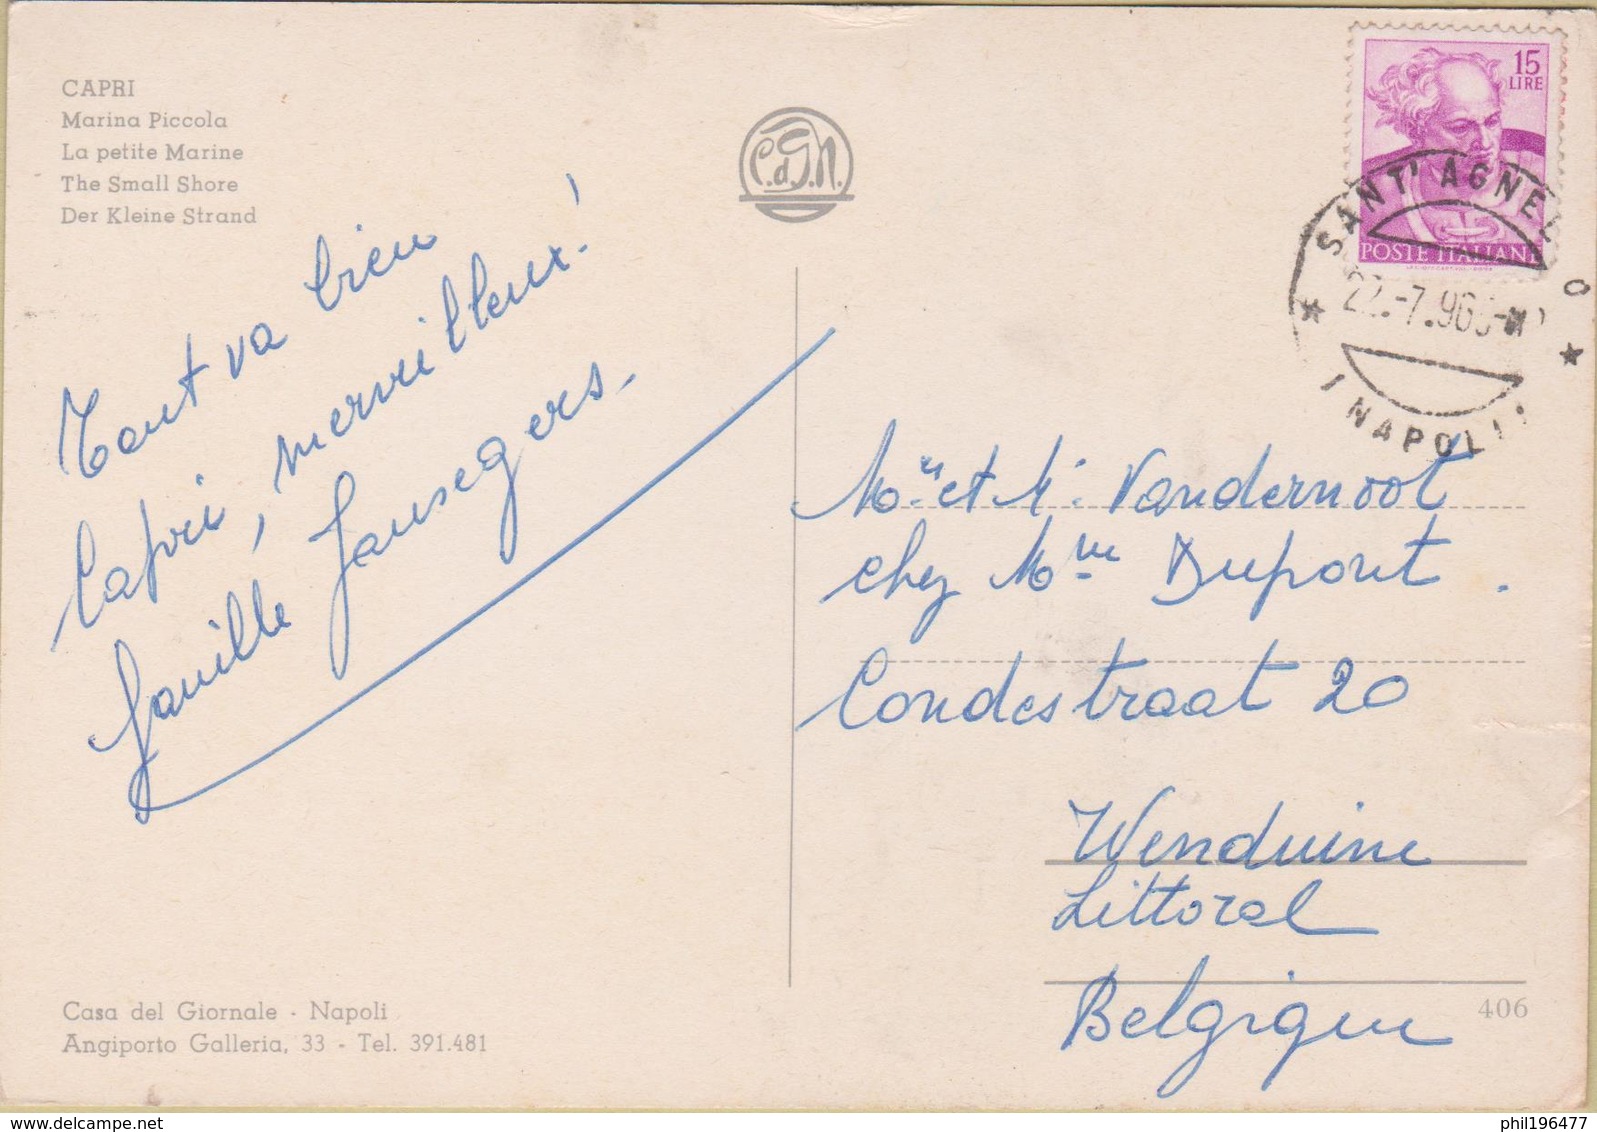 CAPRI
Marina Piccola
La petite Marine
The Small Shore
Der Kleine Strand
C.d.G.N.
15
LIRE
POSTE ITALIANE
SANT' AGNELLO
22.-7.96
NAPOLI
Tout va bien
Capri, merveilleux!
famille Jansegers.
Mme et M. Vandernoot
chez Mme Dupont
Condestraat 20
Wenduine
Littoral
Belgique
406
Casa del Giornale - Napoli
Angiporto Galleria, 33 - Tel. 391.481
delcampe.net
phil196477